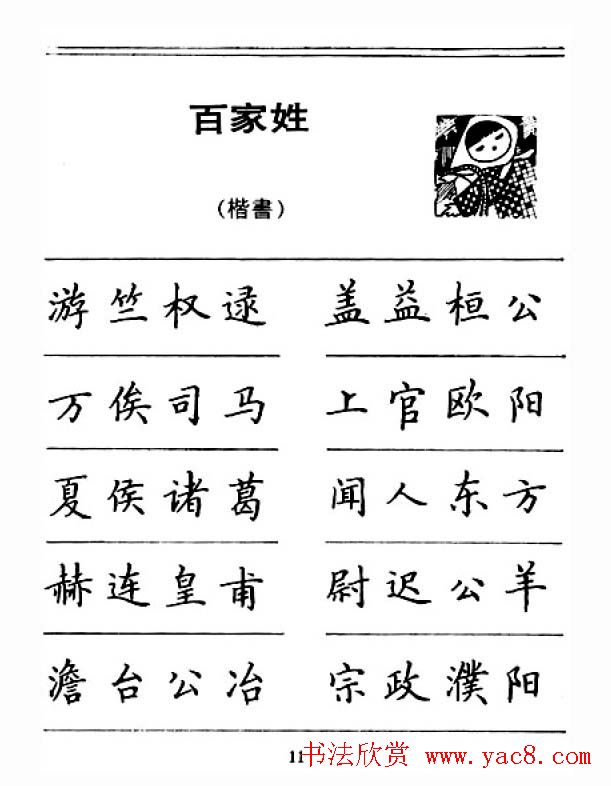 百家姓
（楷書）
游竺权逯 盖益桓公
万俟司马 上官欧阳
夏侯诸葛 闻人东方
赫连皇甫 尉迟公羊
澹台公冶 宗政濮阳
11 书法欣赏 www.yac8.com